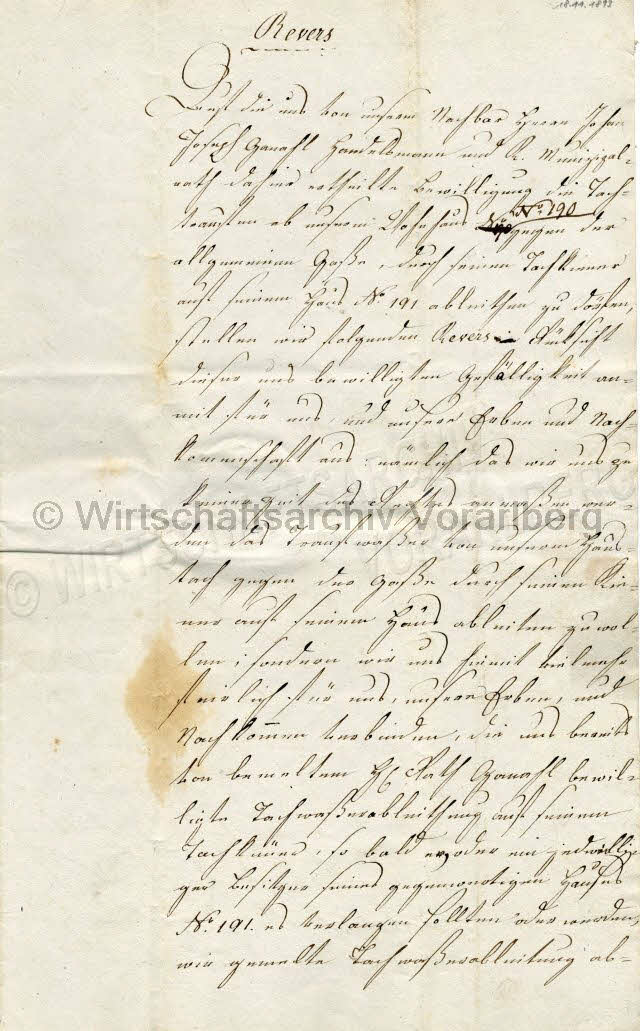 18.11.1893
Revers
Auf die uns von unserm Nachbar Herrn Johan
Joseph Ganahl Handelsmann und K. Munizipal-
rath dahier ertheilte Bewilligung die Tach-
traufen ob unserm Wohnhaus No. 190 gegen der
allgemeinen Gaße, durch seinen Tachkiener
auf seinem Haus No. 191 ableithen zu dörfen,
stellen wir folgenden Revers in Rüksicht
dieser uns bewilligten Gefälligkeit an-
mit für uns, und unsere Erben und Nach-
kommenschaft aus: nämlich das wir uns zu
keiner Zeit des Rechtes anmaßen wer-
den das Traufwaßer von unserm Haus-
tach gegen der Gaße durch seinen Kie-
ner auf seinem Haus ableiten zu wol-
len; sondern wir uns hiemit vielmehr
feirlich für uns, unsere Erben, und
Nachkommen verbinden, die uns bereits
von bemeltem H. Rath Ganahl bewil-
ligte Tachwaßerableithung auf seinem
Tachkiener, so bald er, oder ein jedweilli-
ger Besitzer seines gegenwertigen Hauses
No. 191. es verlangen sollten oder werden,
wir gemelte Tachwaßerableitung ab-
© Wirtschaftsarchiv Vorarlberg